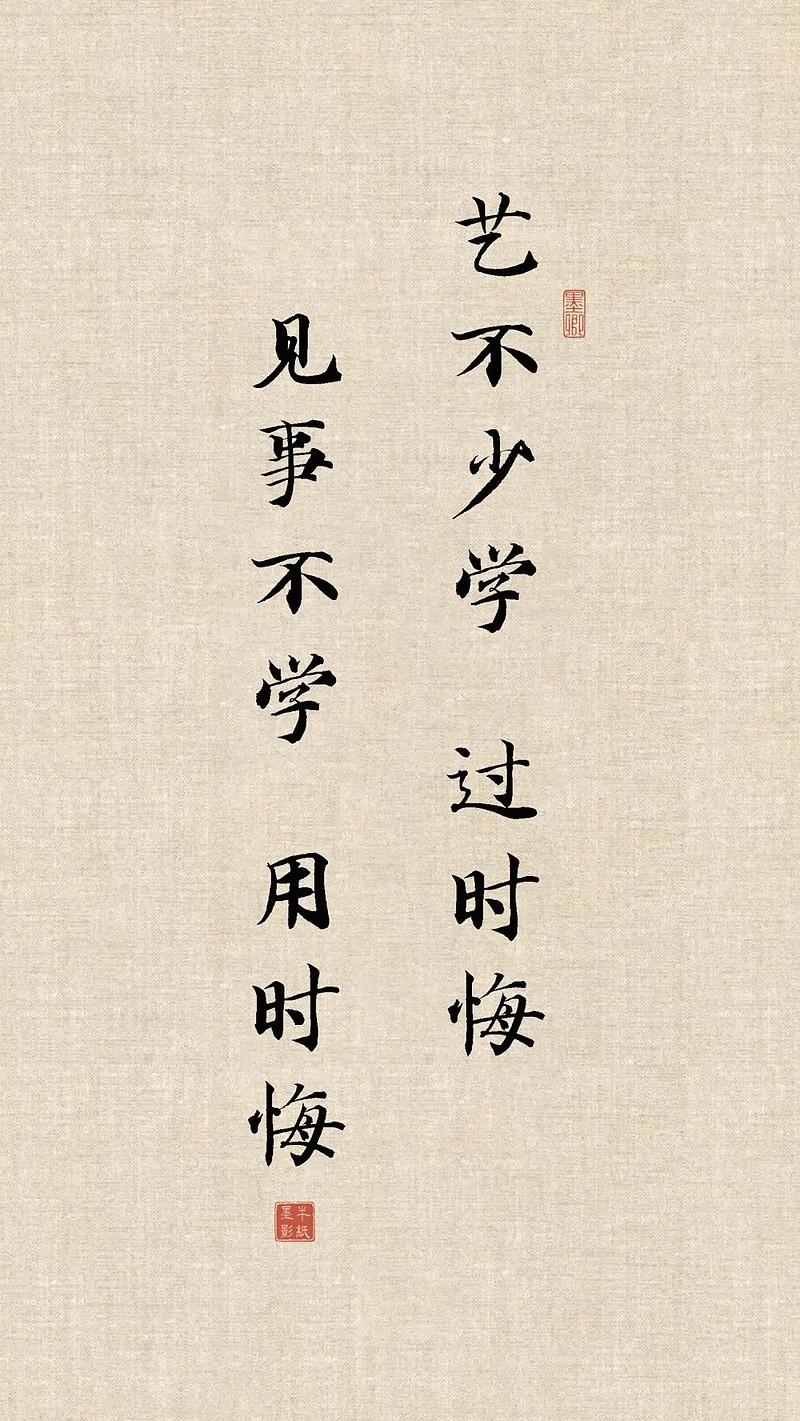 艺不少学 过时悔
墨卿
见事不学 用时悔
半纸墨影